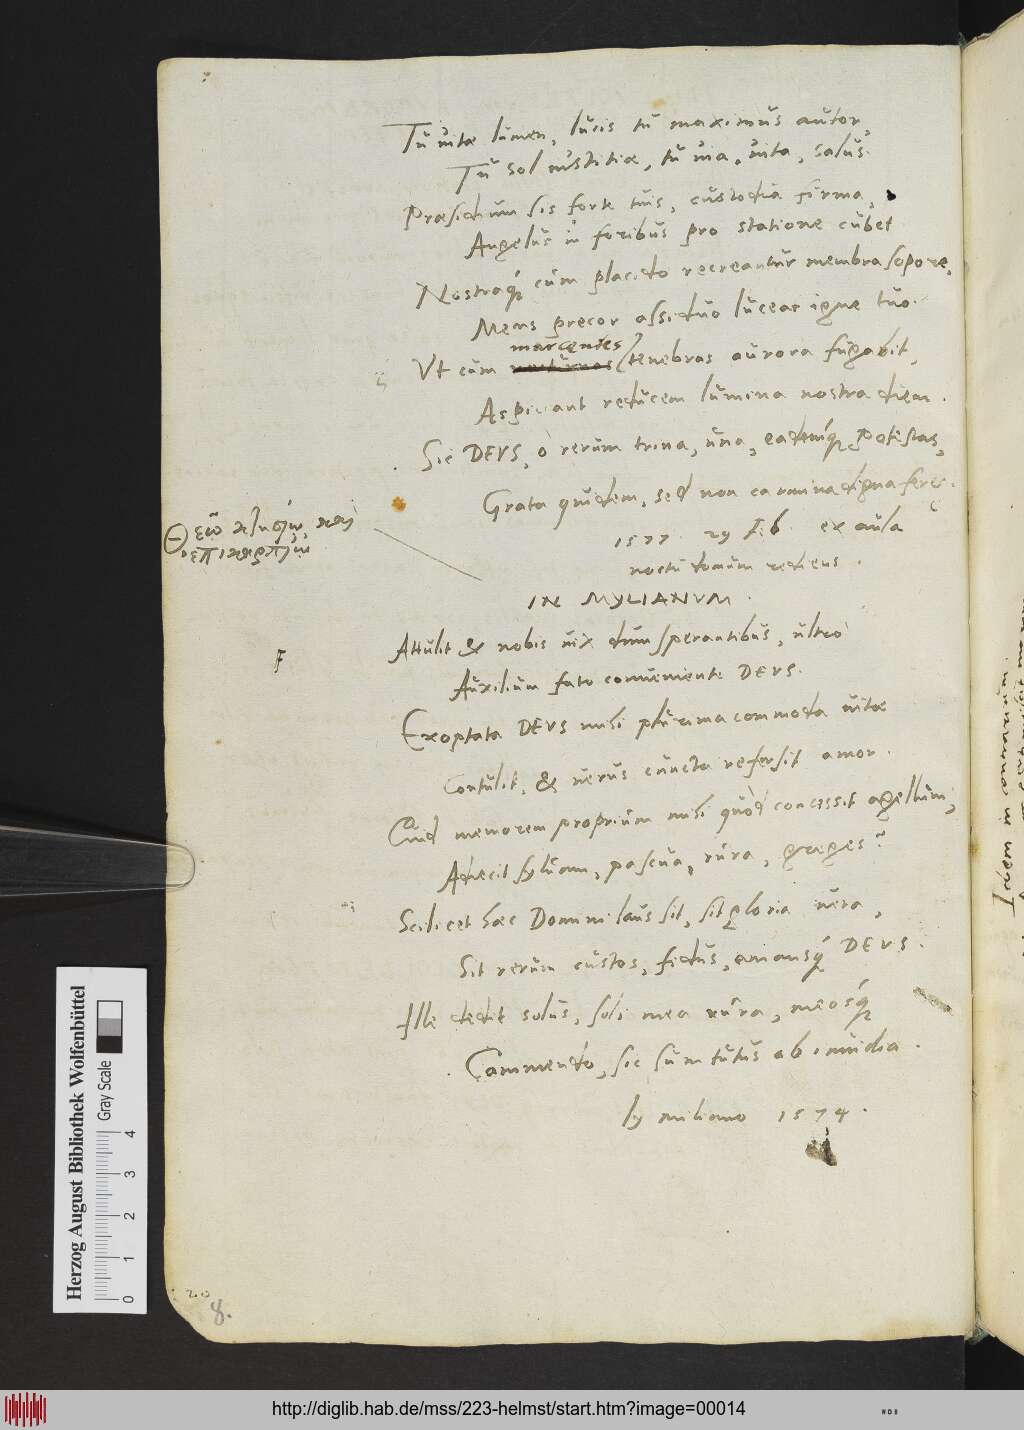 Tu vitæ lumen, lucis tu maximus autor,
Tu sol iustitiæ, tu via, vita, salus.
Præsidium sis forte tuis, custodia firma,
Angelus in foribus pro statione cubet
Nostraq́ue cum placido recreantur membra sopore,
Mens precor assiduo luceat igne tuo.
marcentes
Vt cum nocturnas tenebras aurora fugabit,
Aspiciant reducem lumina nostra diem.
Sic DEVS, ô rerum trina, una, eademq́ue potestas,
Grata quidem, sed non carmina digna feres.
1577 29 Feb. ex aula
noctu domum rediens.
Θεῷ κτησίῳ καὶ
ἐπικαρπίῳ
IN MYLIANVM.
F
Attulit & nobis vix dum sperantibus, ultrò
Auxilium fato conveniente DEVS.
Exoptata DEVS mihi plurima commoda vitæ
Contulit, & verus cuncta refersit amor.
Quid memorem proprium mihi quòd concessit agellum,
Adiecit sylvam, pascua, rura, greges?
Scilicet hæc Domini laus sit, sit gloria vera,
Sit rerum custos, fidus, amansq́ue DEVS.
Ille dedit solus, soli mea rura, meosq́ue
Commendo, sic sum tutus ab invidia.
In miliano 1574.
20
8.
Herzog August Bibliothek Wolfenbüttel
Gray Scale
0 1 2 3 4
http://diglib.hab.de/mss/223-helmst/start.htm?image=00014